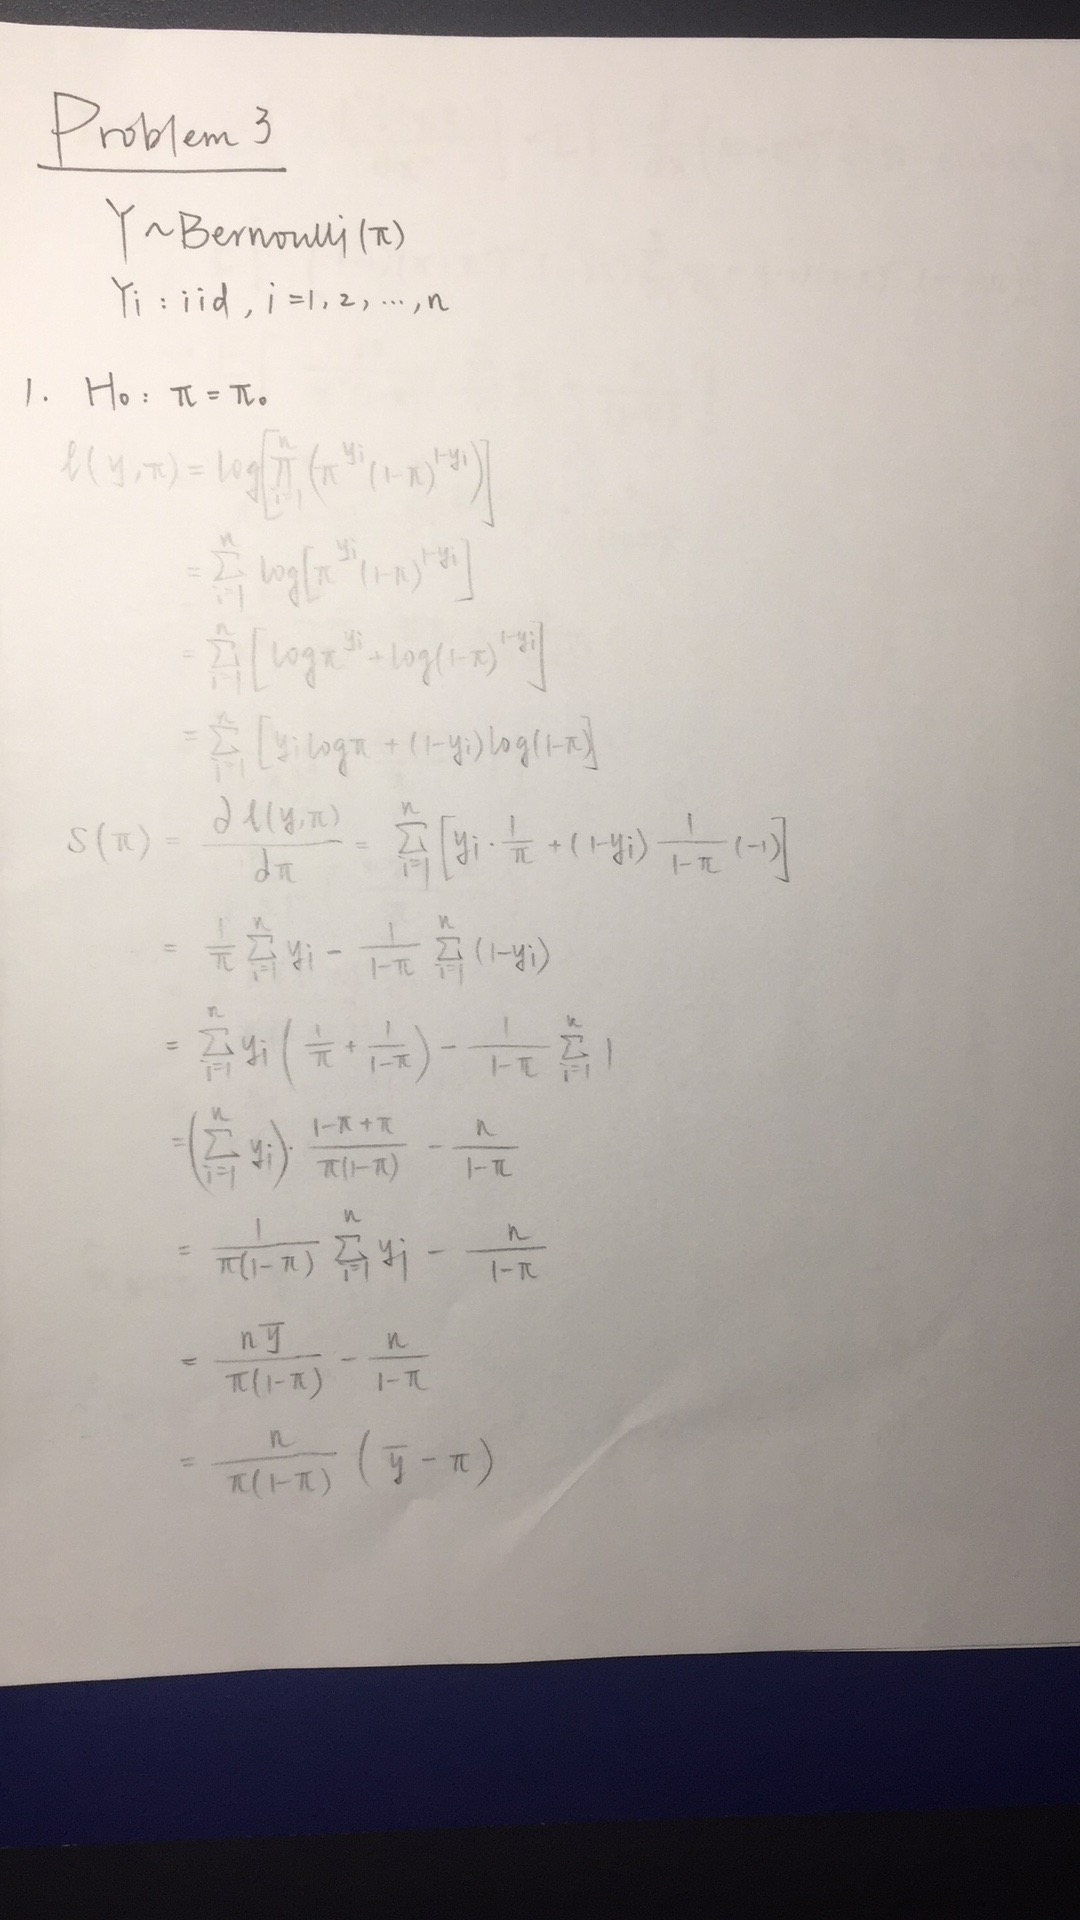 Problem 3
Y ~ Bernoulli (π)
Yi : iid , i = 1, 2, ..., n
1. H₀ : π = π₀
ℓ(y, π) = log[∏_{i=1}^{n} (π^{yi} (1-π)^{1-yi})]
= ∑_{i=1}^{n} log[π^{yi} (1-π)^{1-yi}]
= ∑_{i=1}^{n} [log π^{yi} + log(1-π)^{1-yi}]
= ∑_{i=1}^{n} [yi log π + (1-yi) log(1-π)]
S(π) = ∂ℓ(y,π)/∂π = ∑_{i=1}^{n} [yi · 1/π + (1-yi) 1/(1-π) (-1)]
= 1/π ∑_{i=1}^{n} yi - 1/(1-π) ∑_{i=1}^{n} (1-yi)
= ∑_{i=1}^{n} yi (1/π + 1/(1-π)) - 1/(1-π) ∑_{i=1}^{n} 1
= (∑_{i=1}^{n} yi) · (1-π+π)/(π(1-π)) - n/(1-π)
= 1/(π(1-π)) ∑_{i=1}^{n} yi - n/(1-π)
= nȳ/(π(1-π)) - n/(1-π)
= n/(π(1-π)) (ȳ - π)